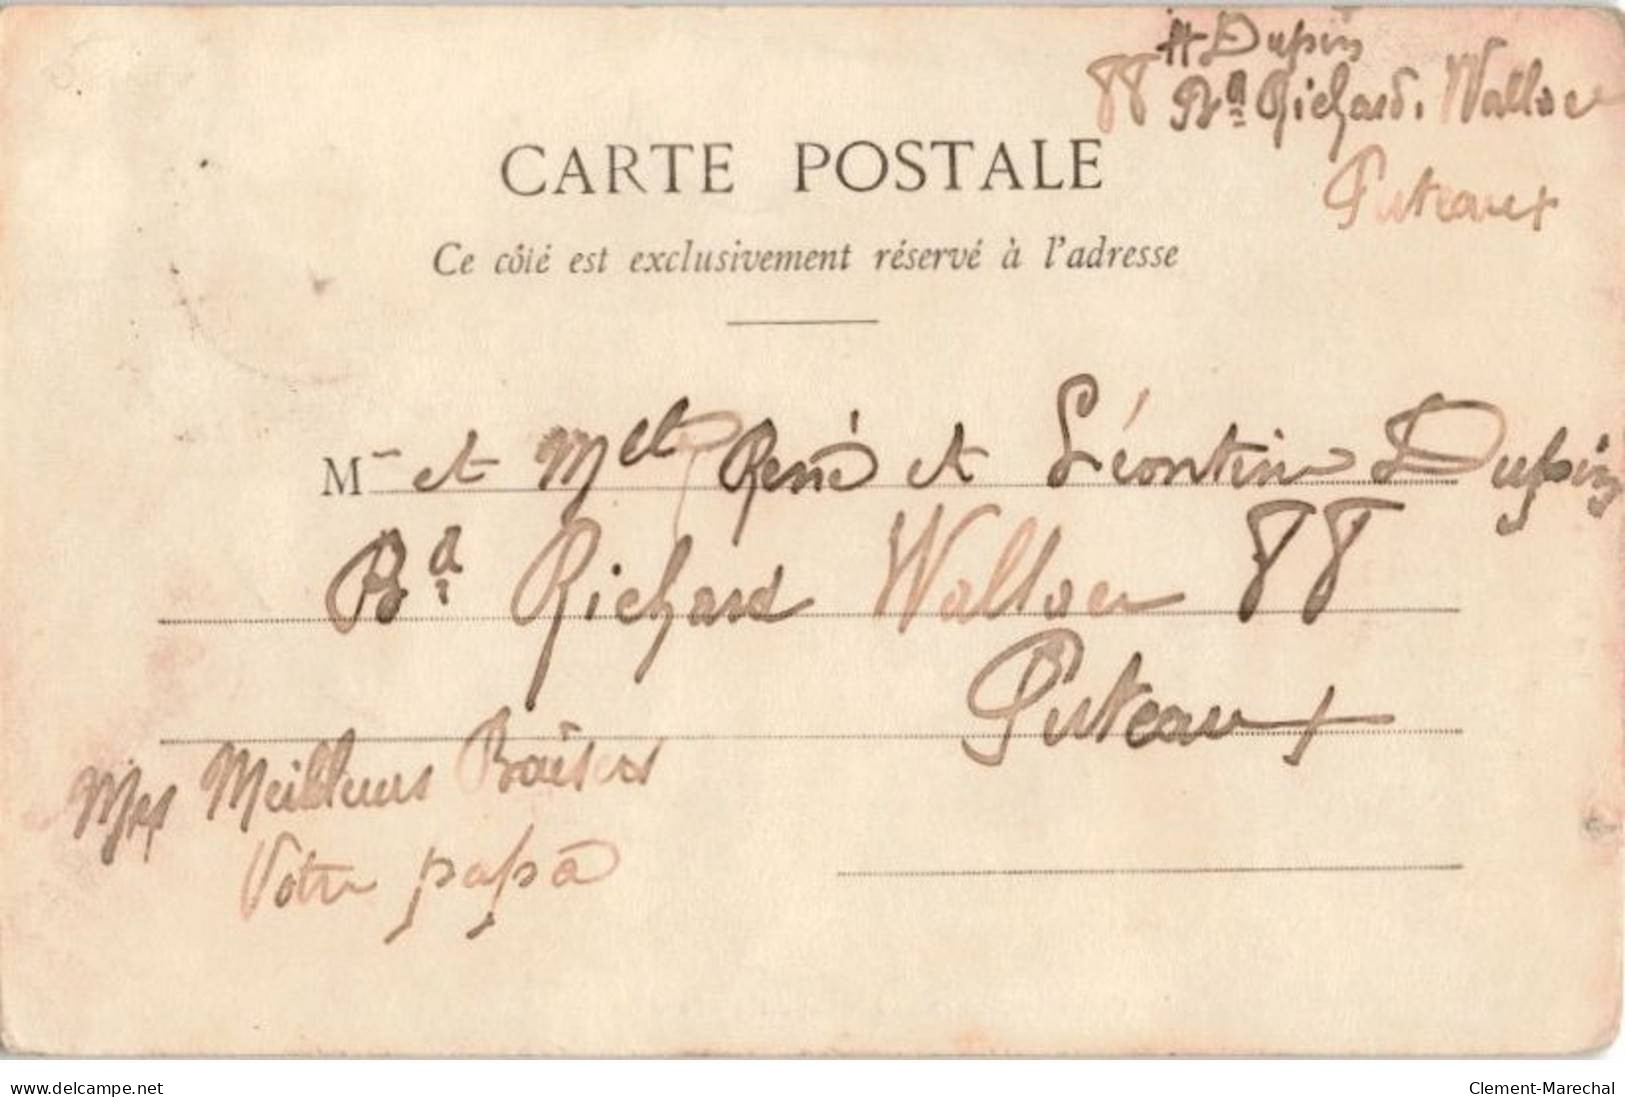 H Dupin
88 Bd Richard. Wallace
Puteaux
CARTE POSTALE
Ce côté est exclusivement réservé à l'adresse
M et Mell René et Léontine Dupin
Bd Richard Wallace 88
Puteaux
Mes Meilleurs Baisers
Votre papa
www.delcampe.net
Clement-Marechal